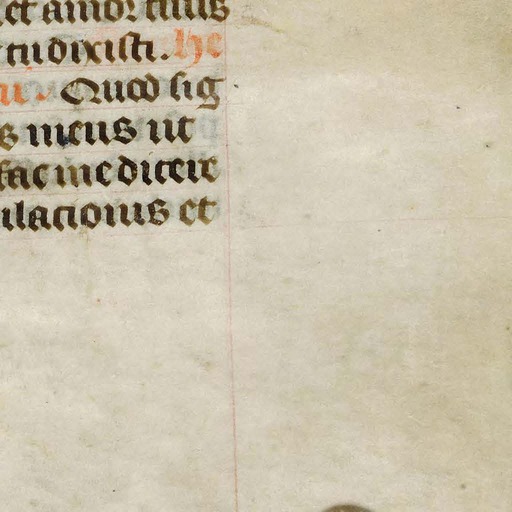 et amor tuus
tu dixisti. he
u. Quod sig
s meus ut
fac me dicere
ilacionis et